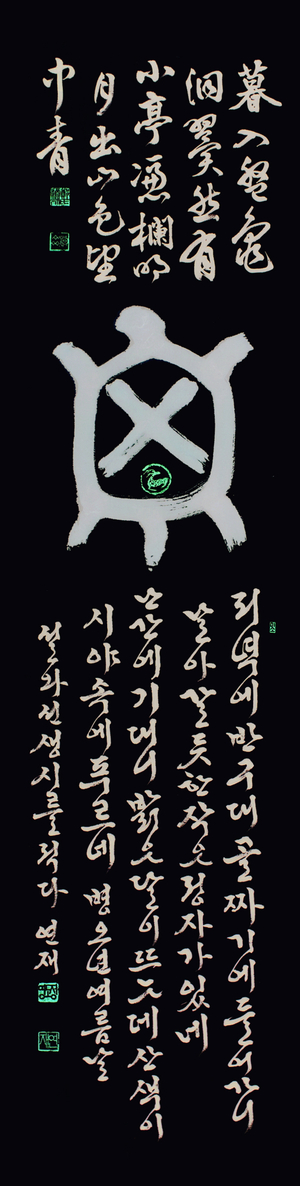 暮入盤龜
洞翼然有
小亭憑欄明
月出山色望
中青
저녁에 반구대 골짜기에 들어가니
날아갈 듯한 작은 정자가 있네
난간에 기대니 밝은 달이 뜨는데 산색이
시야 속에 푸르네 병오년 여름날
선생 시를 적다 연재